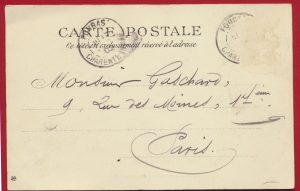 CARTE POSTALE
Ce côté est exclusivement réservé à l'adresse
FOURAS
CHARENTE
Monsieur Gaschard
9, Rue des Moines, 1er
Paris.